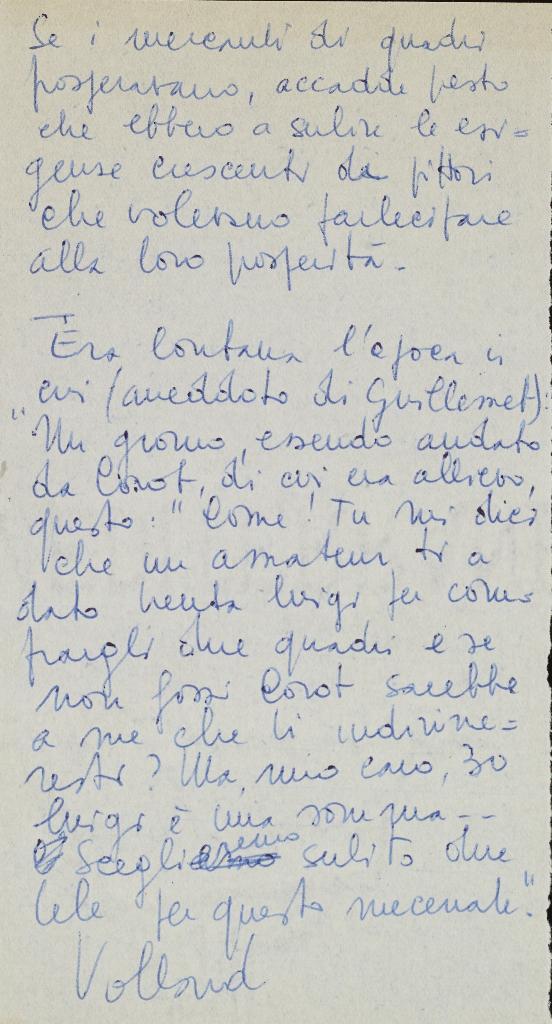 Se i mercanti di quadri
prosperavano, accadde presto
che ebbero a subire le esi=
genze crescenti da pittori
che volevano partecipare
alla loro prosperità.
Era lontana l'epoca in
cui (aneddoto di Guillemet):
"Un giorno, essendo andato
da Corot, di cui era allievo,
questo: "Come! Tu mi dici
che un amateur ti a
dato trenta luigi per com-
prargli due quadri e se
non fossi Corot sarebbe
a me che li indirizze=
resti? Ma, mio caro, 30
luigi è una somma--
Scegliemo subito due
tele per questo mecenate."
Vollard